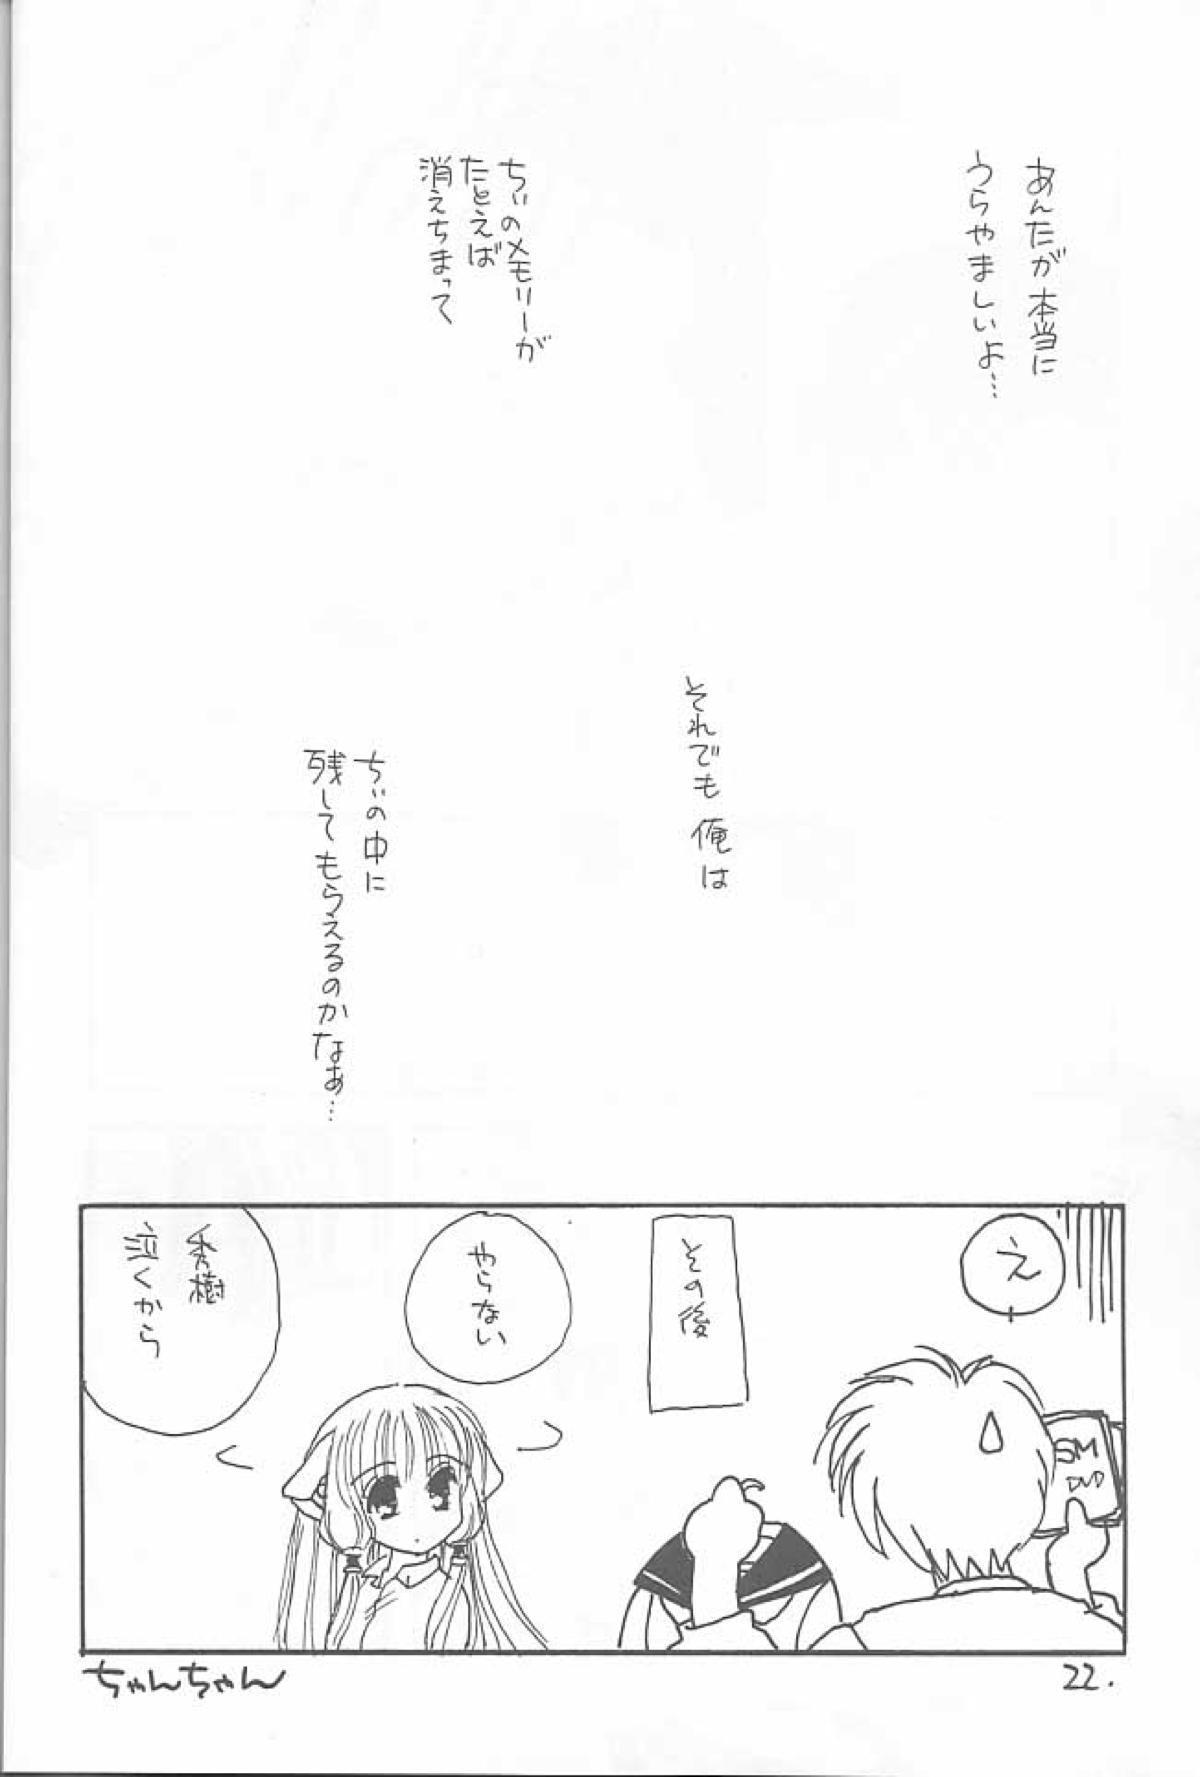 あんたが本当に
うらやましいよ…
ちぃのメモリーが
たとえば
消えちまって
それでも俺は
ちぃの中に
残してもらえるのかなぁ…
え
SM
DVD
その後
やらない
秀樹
泣くから
ちゃんちゃん
22.